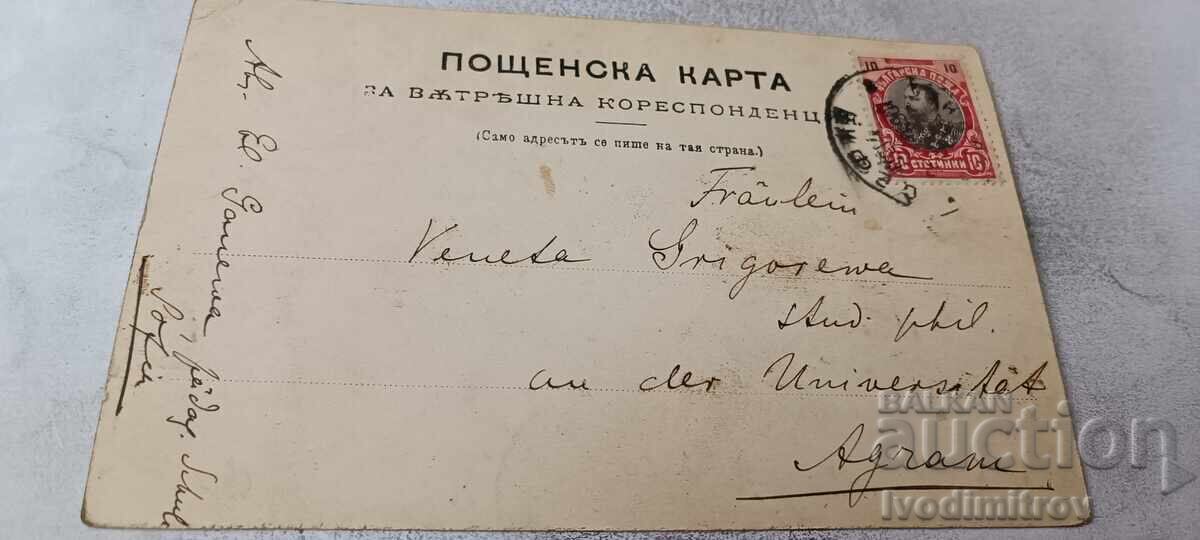 ПОЩЕНСКА КАРТА
ЗА ВѪТРѢШНА КОРЕСПОНДЕНЦИЯ.
(Само адресътъ се пише на тая страна.)
10 10
БЪЛГАРСКА ПОЩА
10 СТОТИНКИ 10
Fräulein
Veneta Grigorewa
stud. phil.
an der Universität
Agram
El. Ganewa
pädag. Schul
Sofia
BALKAN
auction
Ivodimitrov